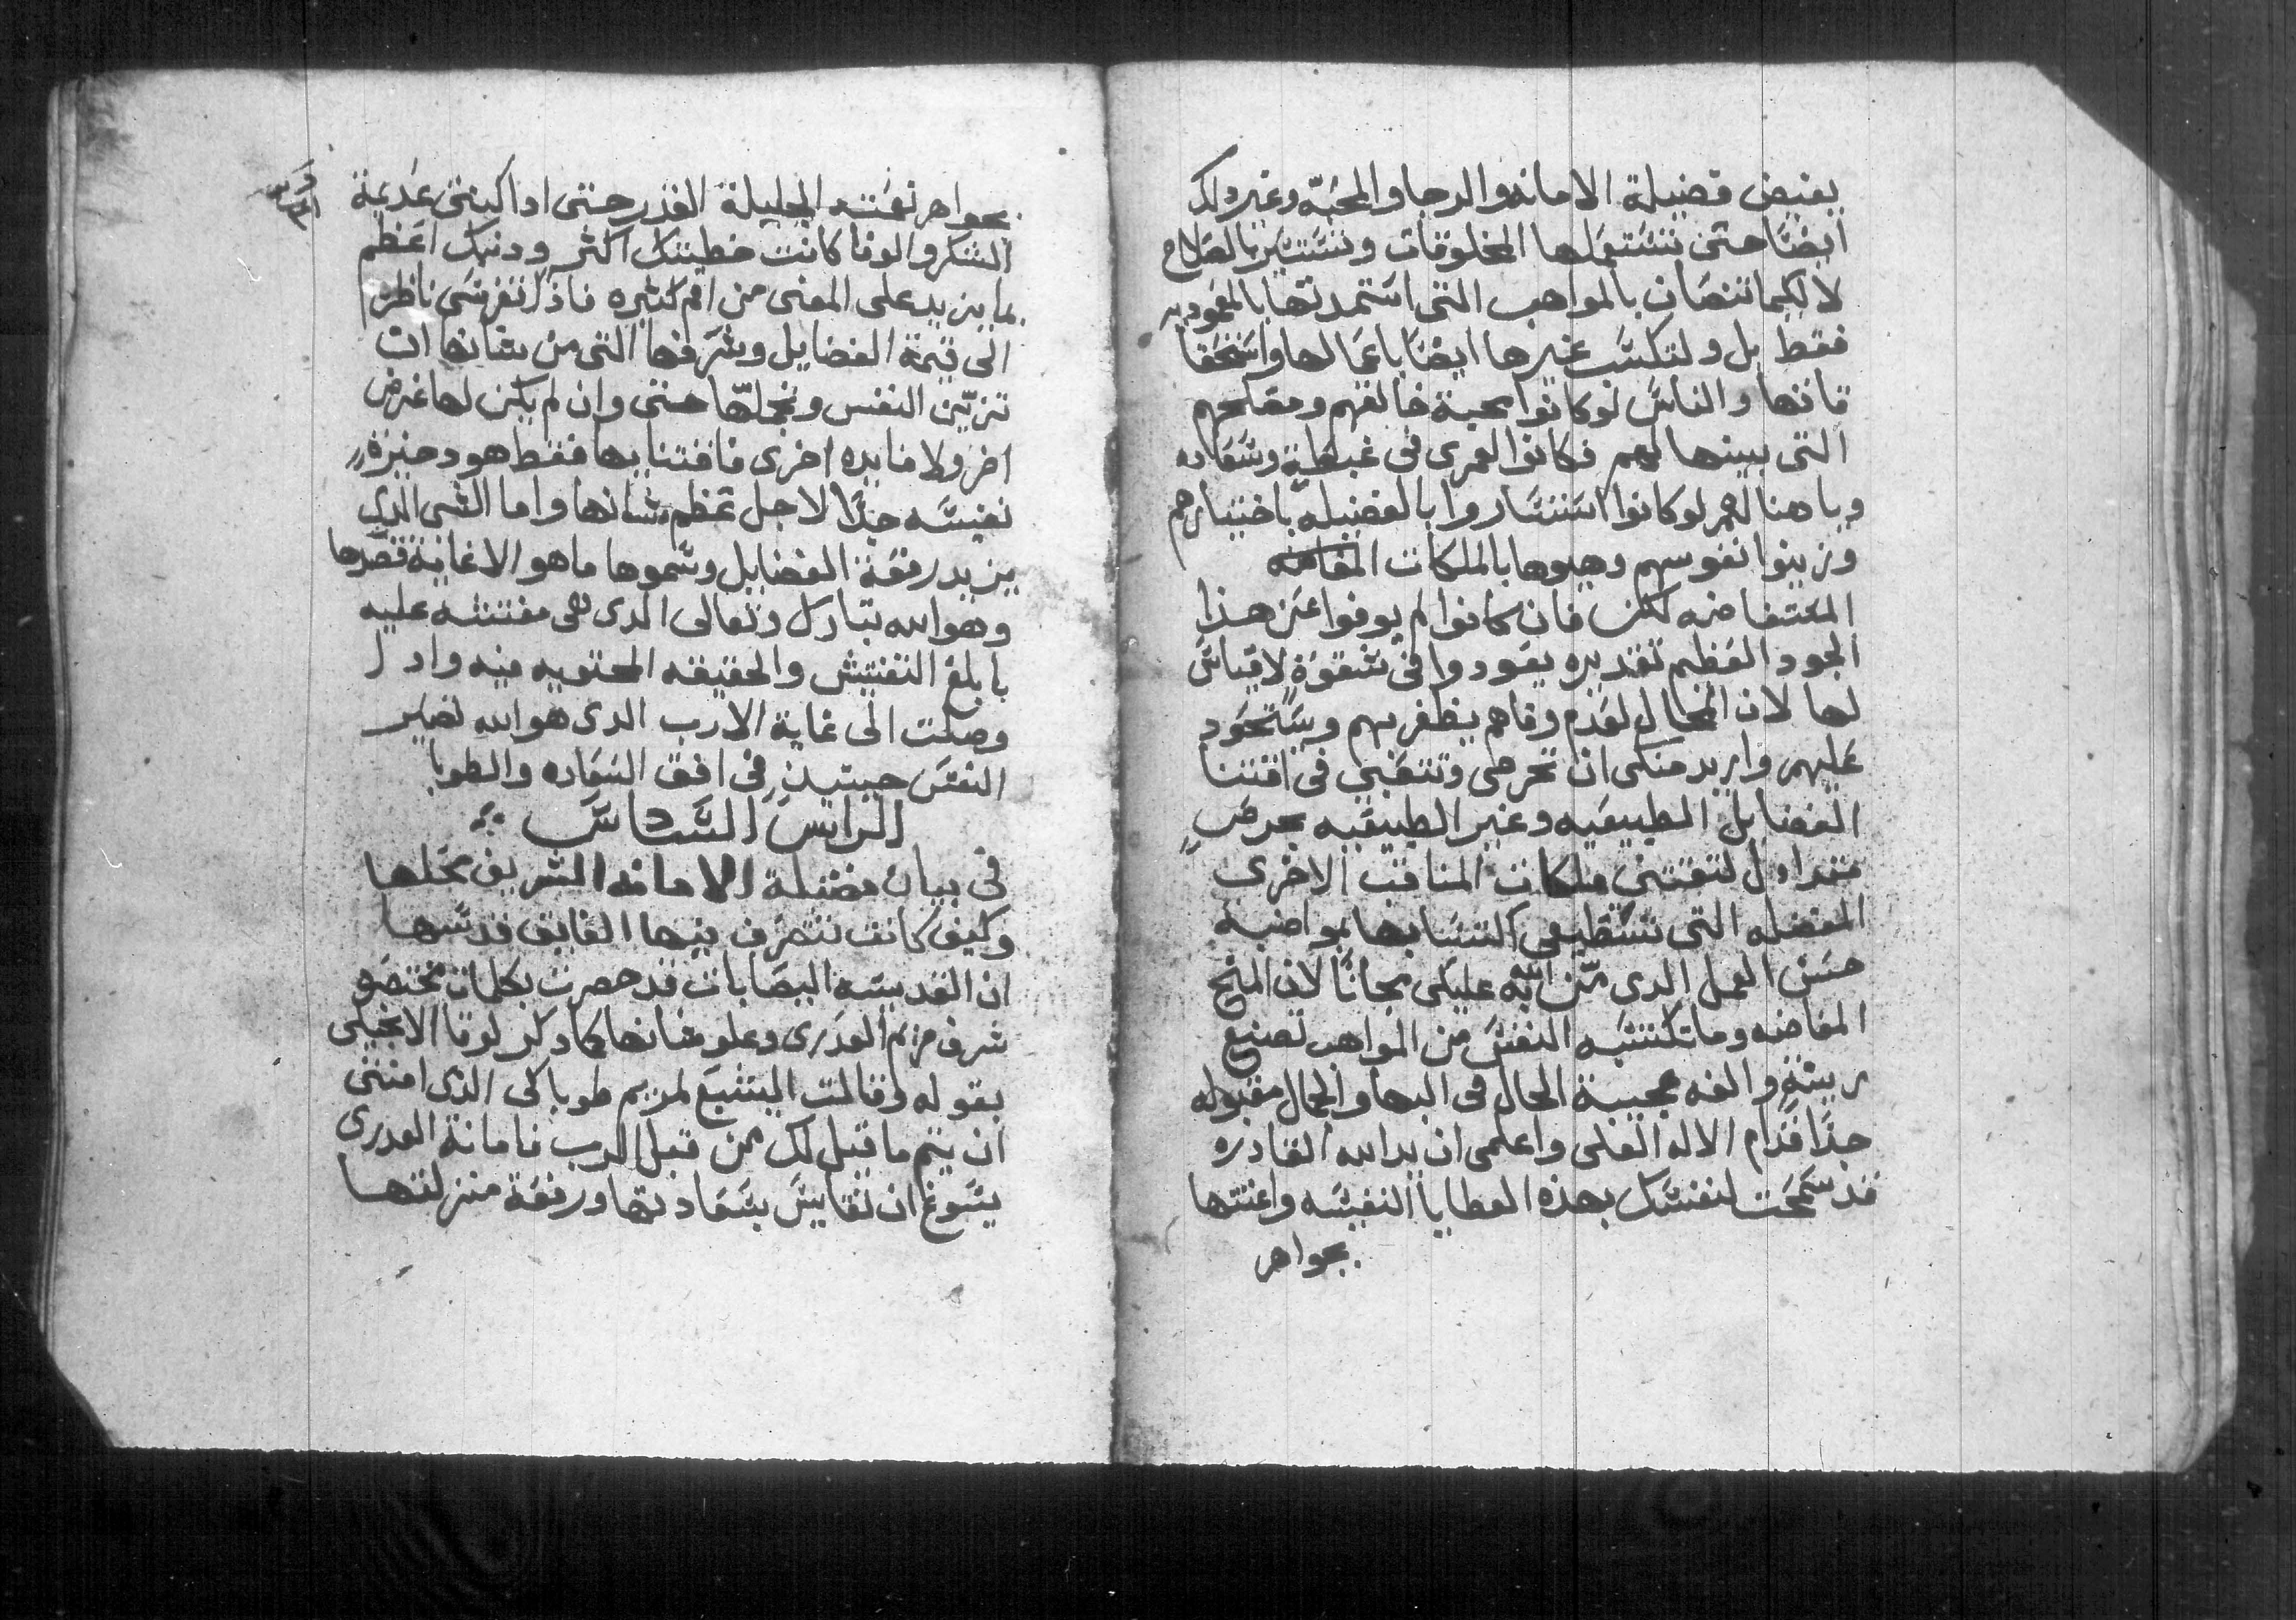 بفيض فضيلة الامانه والرجا والمحبّه وغير دلك
ايضًا حتى تستعملها المخلوقات وتستتير بالصلاح
لا لكيما تنصان بالمواهب التى استمدتها بالمعموديه
فقط بل ولتكسَب غيرها ايضًا باعمالها واستحقا
قاتها والناسَ لو كانوا بمحبة خالقهم ومصلحهم
التى بينها لهم فكانوا لعمرى فى غبطةٍ وسَعاده
ويا هنا لهم لو كانوا استَساروا بالفضيله باختيارهم
وزينوا نفوسهم وهيوها بالملكات المفاضه
المستفاضه لكن فان كانوا لم يوفوا عن هذا
الجود العظيم تقديره يعودوا فى شقوةٍ لا قياسَ
لها لان المحال لعدم وفاهم يظفر بهم ويستحَود
عليهم واريد منكى ان تحرصى وتتعَبى فى اقتنا
الفضايل الطبيعَيه وغير الطبيعَيه بحرصٍ
متداول لتقتنى ملكات المناقب الاخرى
المفضله التى تستطيعى اكتسَابها بمواضبة
حسَن العمل الدى منّ الله عليكى مجانًا لان المنح
المفاضه وما تكتسَبه النفسَ من المواهب تصنع
زينةٍ والفه عجيبة الحال فى البها والجمال مقبوله
جدًا قدام الاله العلى واعلمى ان يد الله القادره
قد سَمحَت لنفسَك بهذه العطايا النفيسَه واغنتها
بجواهر
بجواهر نعمته الجليلة القدر حتى ادا كنتى عديمة
الشكر والوفا كانت خطيتك اكثر ودنبك اعَظم
بما يزيد على المعنى من امم كثيره فاذًا تفرسَى ناظره
الى قيمة الفضايل وشرفها التى من شانها ان
تزيّن النفس وتجملّها حتى وان لم يكن لها غرض
اخر ولا فايده اخرى فاقتنايها فقط هو دخيرة
نفيسَه جدًا لاجل عَظم شانها واما الشى الدى
يزيد رفعة الفضايل وسموها ما هو الا غاية قصدها
وهو الله تبارك وتعالى الدى هى مفتشه عليه
بابلغ التفتيش والحقيقه المحتويه فيه وادا
وصلت الى غاية الارب الدى هو الله تصير
النفسَ حينيذٍ فى افق السعَاده والطوبا
الرايسَ السَادسَ
فى بيان فضيلة الامانه الشريف محلها
وكيف كانت تتصرَف فيها الفايق قدسَها
ان القديسَه اليصَابات قد حصرت بكلمات مختصَره
شرف مريم العدرى وعلو شانها كما دكر لوقا الانجيلى
بقوله وقالت اليشبع لمريم طوباكى الدى امنتى
ان يتم ما قيل لك من قبل الرب فامانة العدرى
يسَوغ ان تقايسَ بسَعادتها ورفعَة منزلتها